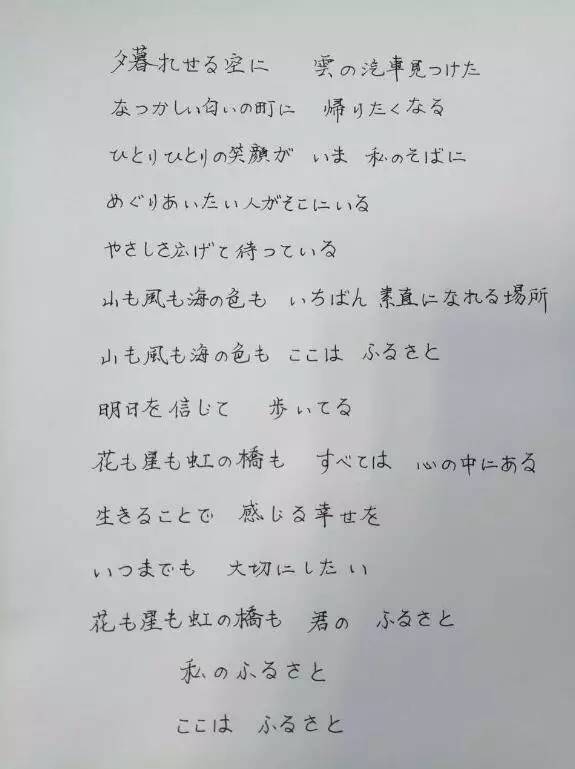 夕暮れせる空に 雲の汽車見つけた
なつかしい匂いの町に 帰りたくなる
ひとりひとりの笑顔が いま 私のそばに
めぐりあいたい人がそこにいる
やさしさ広げて待っている
山も風も海の色も いちばん素直になれる場所
山も風も海の色も ここは ふるさと
明日を信じて 歩いてる
花も星も虹の橋も すべては 心の中にある
生きることで 感じる幸せを
いつまでも 大切にしたい
花も星も虹の橋も 君の ふるさと
私のふるさと
ここは ふるさと